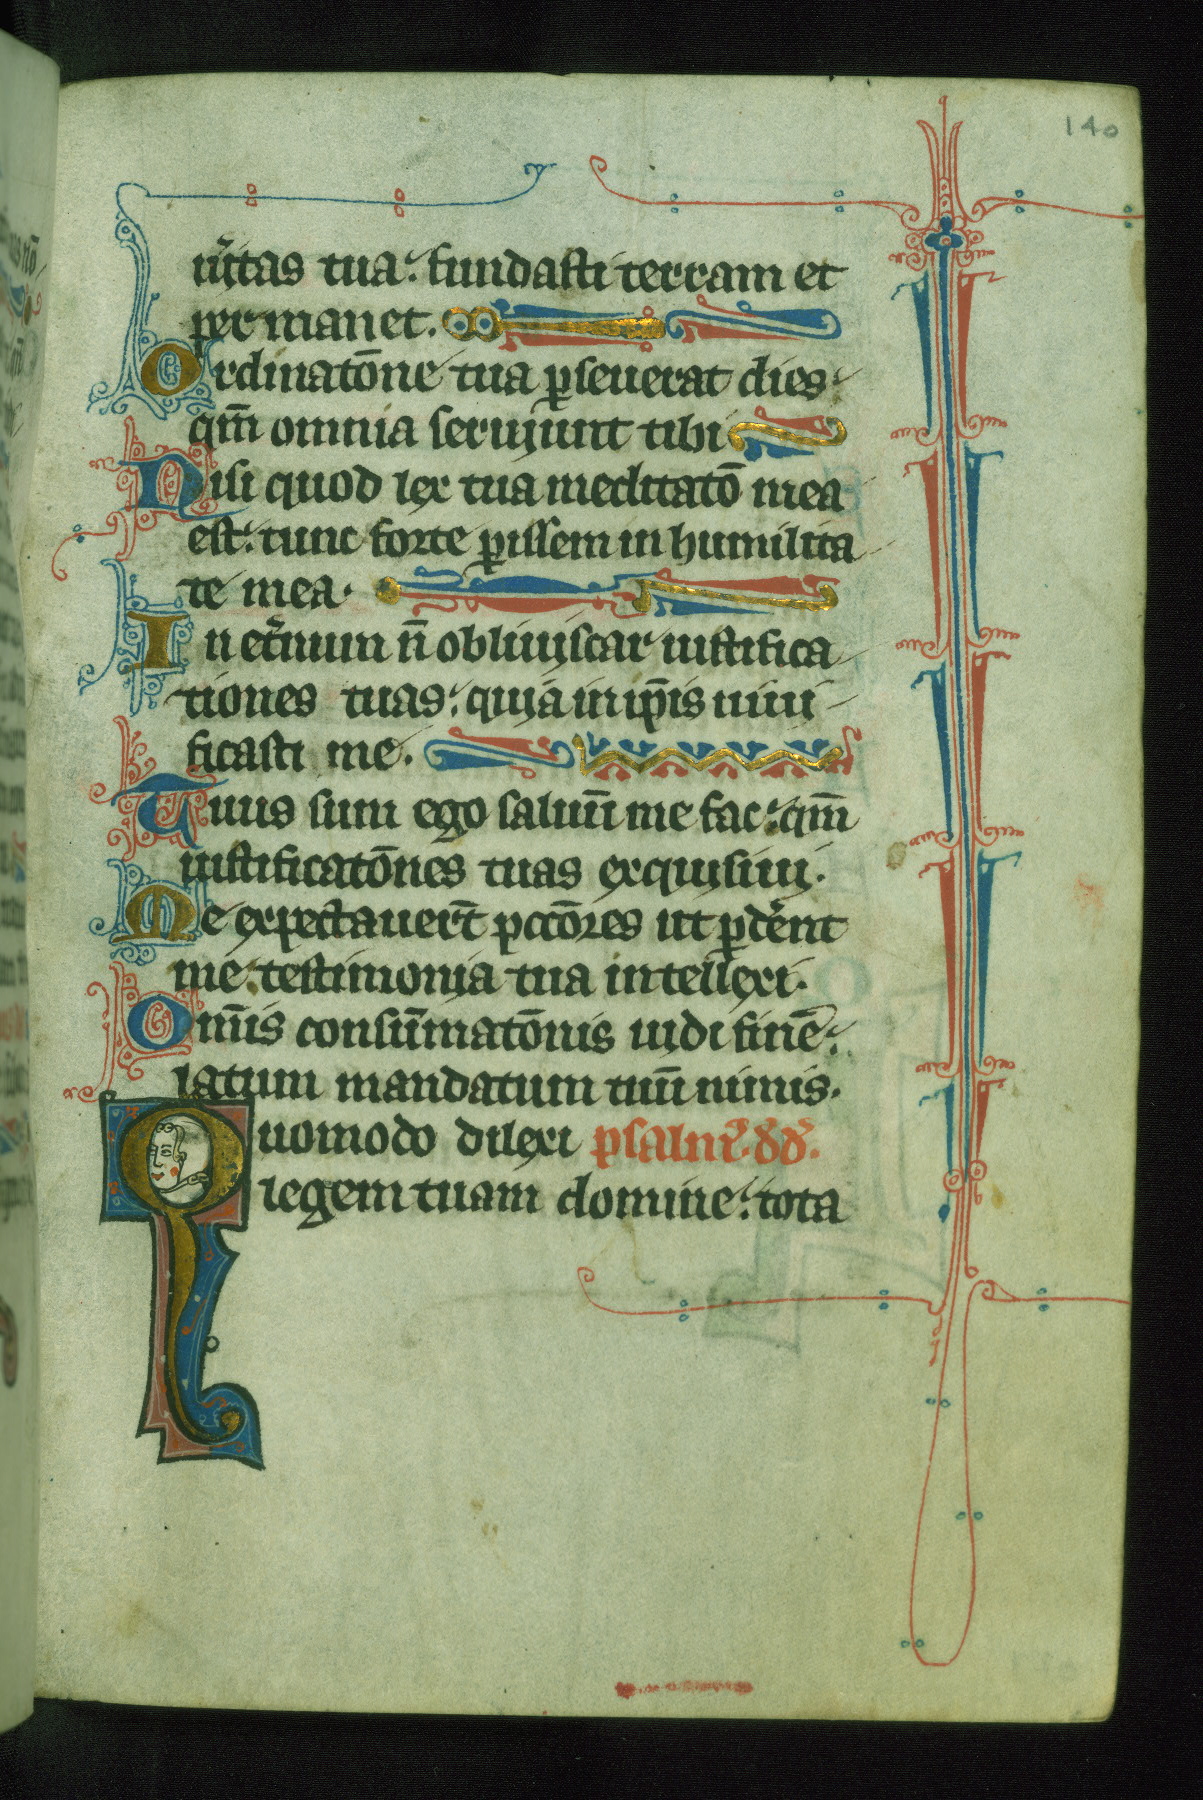 140
ũitas tua: fundasti terram et
permanet.
Ordinatōne tua ꝑseuerat dies:
qm̄ omnia seruiunt tibi
Nisi quod lex tua meditatō mea
est: tunc forte ꝑissem in humilita
te mea.
In et̃num n̄ obliuiscar iustifica
tiones tuas: quia in ip̄is uiui
ficasti me.
Tuus sum ego saluū me fac: qm̄
iustificatōnes tuas exquisiui.
Me expectauert̄ pctōres ut ꝑdẽnt
me: testimonia tua intellexi.
Om̄is consūmatōnis uidi finē:
latum mandatum tuū nimis.
Quomodo dilexi psalm᷒. dd̾.
legem tuam domine: tota